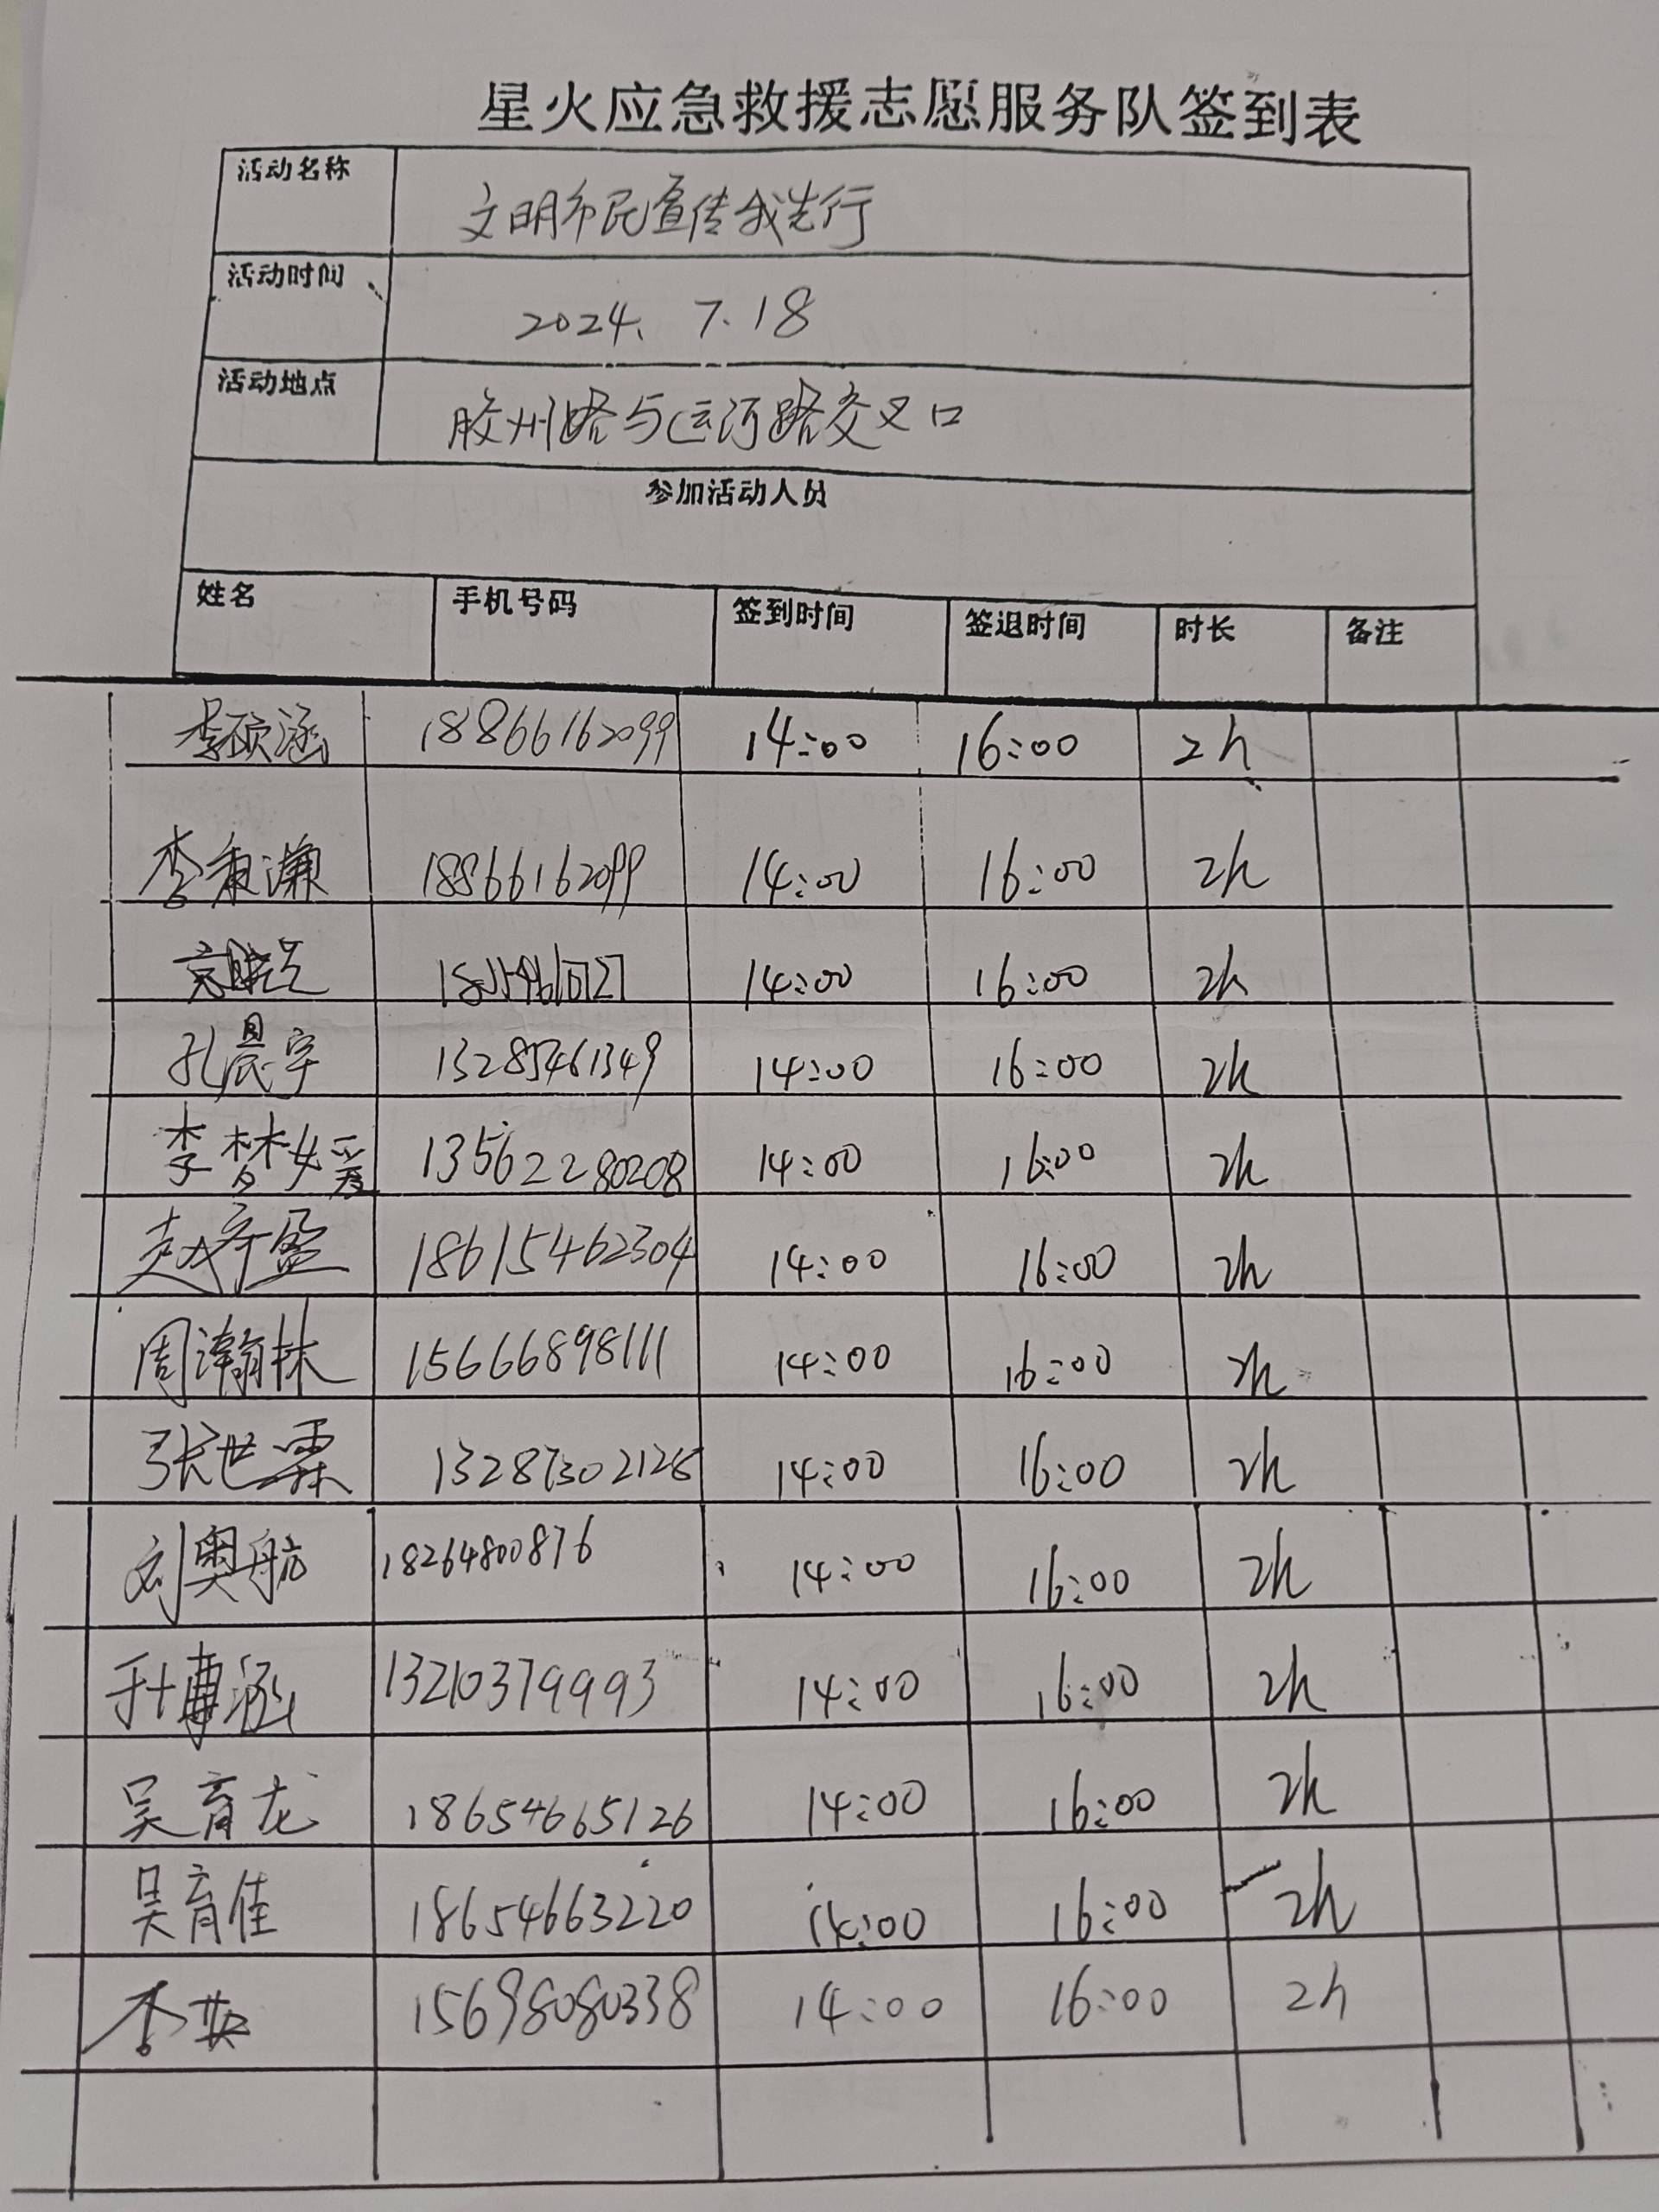 星火应急救援志愿服务队签到表
活动名称 文明市民宣传我先行
活动时间 2024. 7. 18
活动地点 胶州路与运河路交叉口
参加活动人员
姓名 手机号码 签到时间 签退时间 时长 备注
李硕涵 18866162099 14:00 16:00 2h
李秉濂 18866162099 14:00 16:00 2h
14:00 16:00 2h
孔晨宇 13285461349 14:00 16:00 2h
李梦媛 13562280208 14:00 16:00 2h
赵梓盈 18615462304 14:00 16:00 2h
周瀚林 15666898111 14:00 16:00 2h
张世霖 13287302128 14:00 16:00 2h
刘奥航 18264800876 14:00 16:00 2h
于博涵 13210379993 14:00 16:00 2h
吴育龙 18654665126 14:00 16:00 2h
吴育佳 18654663220 14:00 16:00 2h
李英 15698080338 14:00 16:00 2h